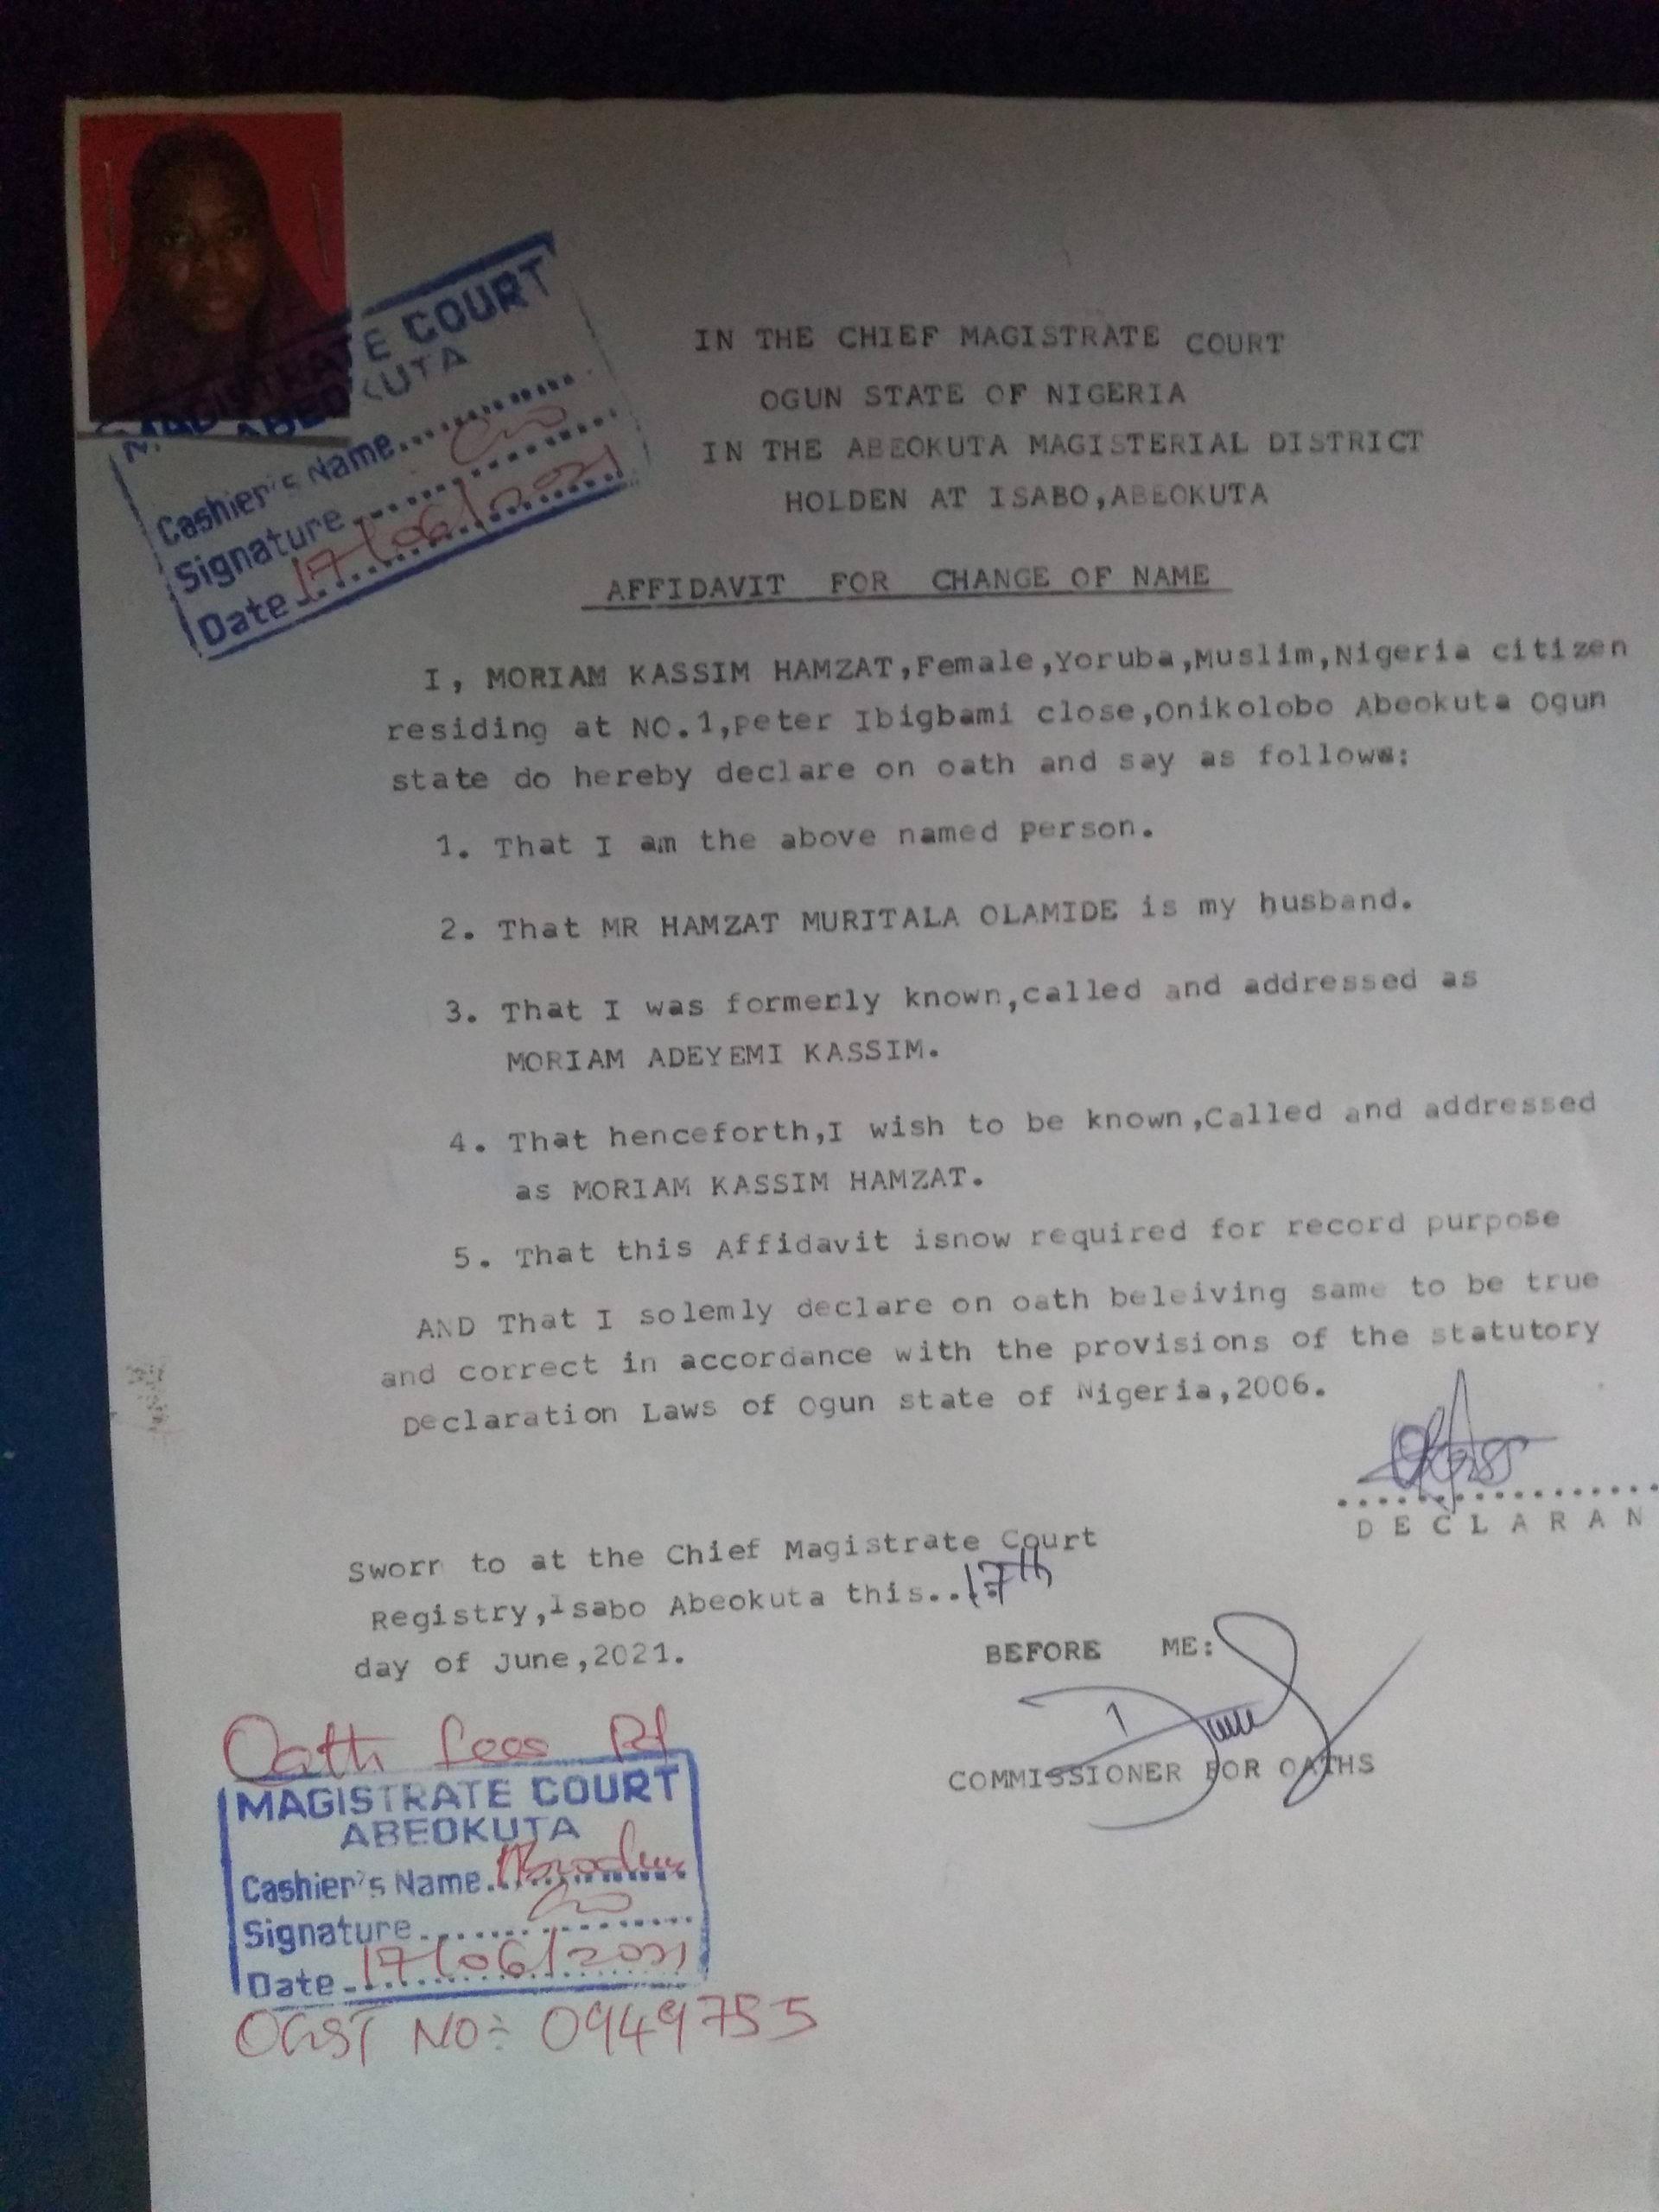 MAGISTRATE COURT
ABEOKUTA
Cashier's Name
Signature
Date 17/06/2021
IN THE CHIEF MAGISTRATE COURT
OGUN STATE OF NIGERIA
IN THE ABEOKUTA MAGISTERIAL DISTRICT
HOLDEN AT ISABO,ABEOKUTA
AFFIDAVIT FOR CHANGE OF NAME
I, MORIAM KASSIM HAMZAT,Female,Yoruba,Muslim,Nigeria citizen
residing at NO.1,peter Ibigbami close,Onikolobo Abeokuta Ogun
state do hereby declare on oath and say as follows:
1. That I am the above named person.
2. That MR HAMZAT MURITALA OLAMIDE is my husband.
3. That I was formerly known,called and addressed as
MORIAM ADEYEMI KASSIM.
4. That henceforth,I wish to be known,Called and addressed
as MORIAM KASSIM HAMZAT.
5. That this Affidavit isnow required for record purpose
AND That I solemly declare on oath beleiving same to be true
and correct in accordance with the provisions of the statutory
Declaration Laws of Ogun state of Nigeria,2006.
DECLARAN
Sworn to at the Chief Magistrate Court
Registry,Isabo Abeokuta this..17th
day of June,2021.
BEFORE ME:
COMMISSIONER FOR OATHS
Oath fees Pd
MAGISTRATE COURT
ABEOKUTA
Cashier's Name
Signature
Date 17/06/2021
OGST NO: 0949755